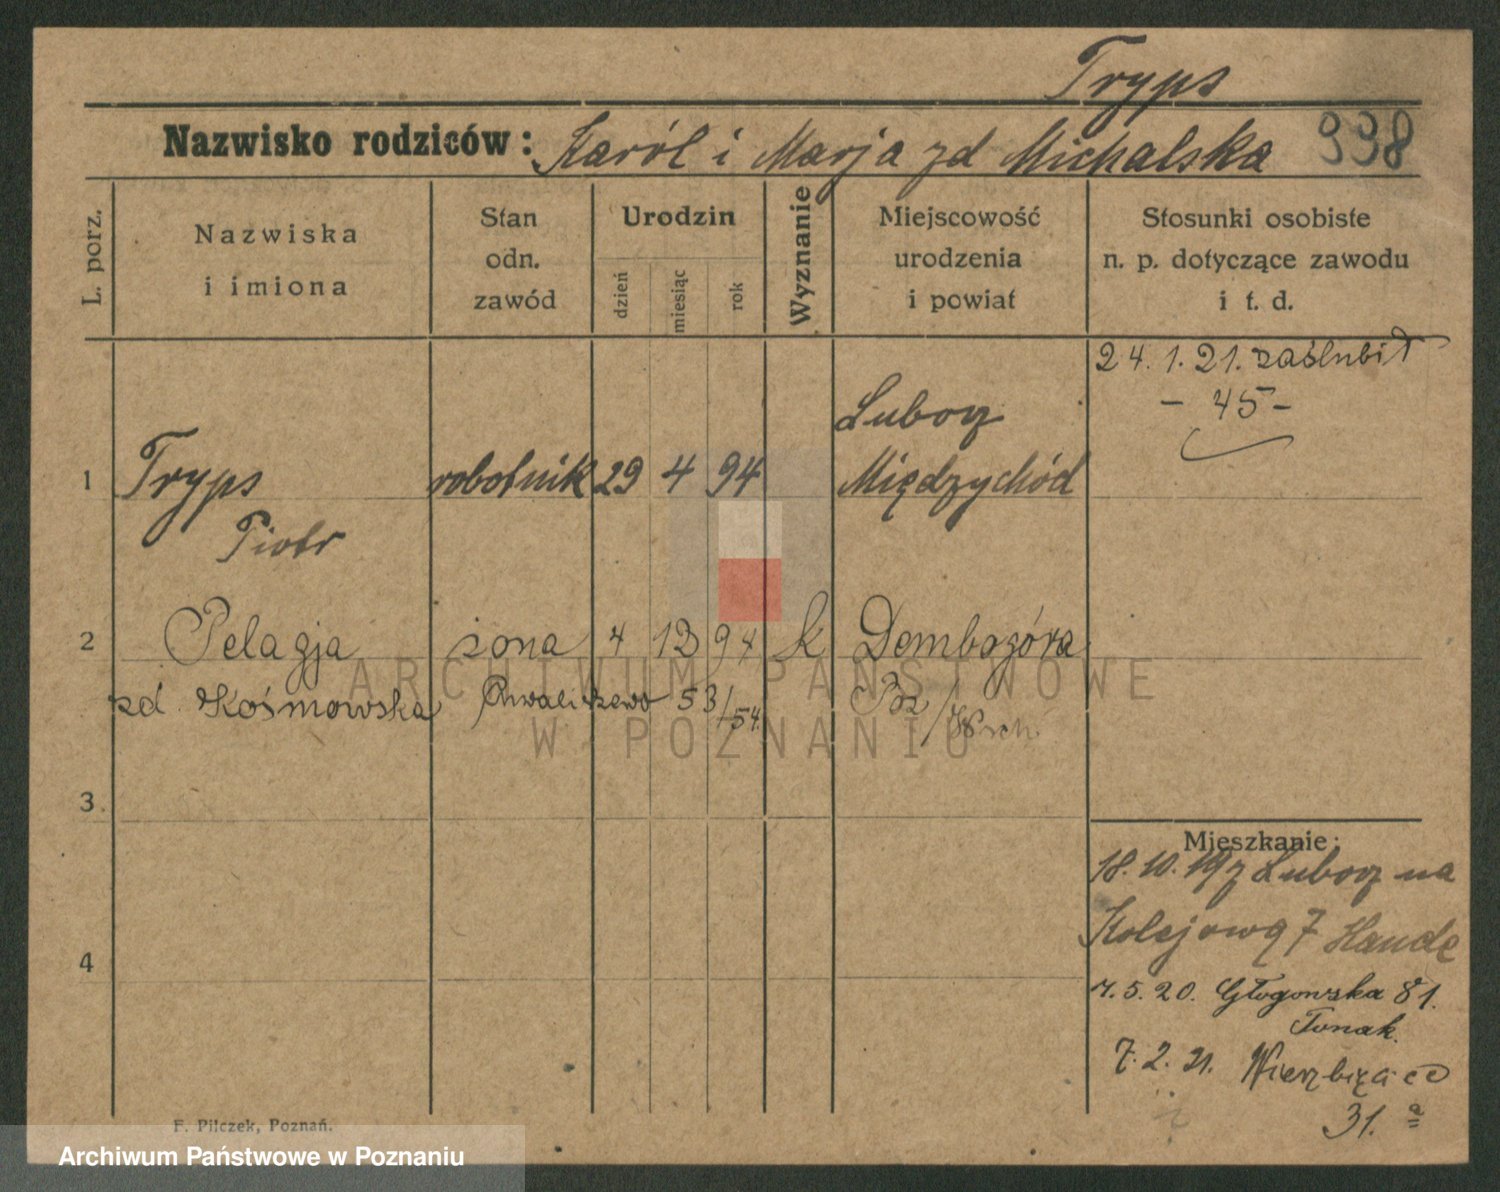 Tryps
Nazwisko rodziców: Karól i Marja zd Michalska 938
L. porz.
Nazwiska i imiona
Stan odn. zawód
Urodzin
dzień
miesiąc
rok
Wyznanie
Miejscowość urodzenia i powiat
Stosunki osobiste n. p. dotyczące zawodu i t. d.
24. 1. 21. zaślubił
- 45 -
Lubosz
1 Tryps robotnik 29 4 94 Międzychód
Piotr
2 Pelagja żona 4 12 94 k Dembogóra
zd. Kośmowska Chwaliszewo 53/54. Poz/Wsch.
3.
4
Mieszkanie:
18. 10. 19 z Lubosz na
Kolejową 7 Haude
7. 5. 20. Głogowska 81.
Tonak.
7. 2. 21. Wierzbięcice
31. a
F. Pilczek, Poznań.
ARCHIWUM PAŃSTWOWE
W POZNANIU
Archiwum Państwowe w Poznaniu